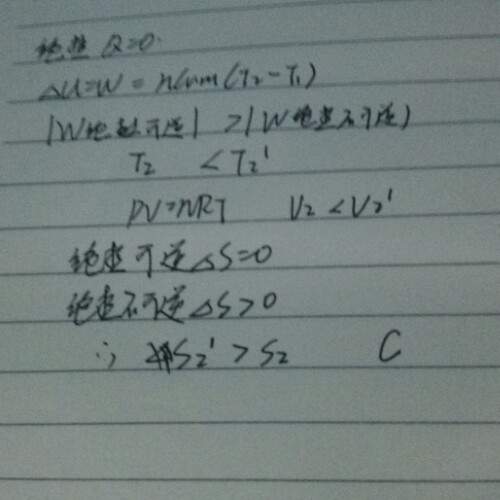 绝热 Q=0.
ΔU=W=nCvm(T₂-T₁)
|W绝热可逆| >|W绝热不可逆|
T₂ <T₂'
PV=nRT V₂<V₂'
绝热可逆ΔS=0
绝热不可逆ΔS>0
∴ S₂'>S₂ C